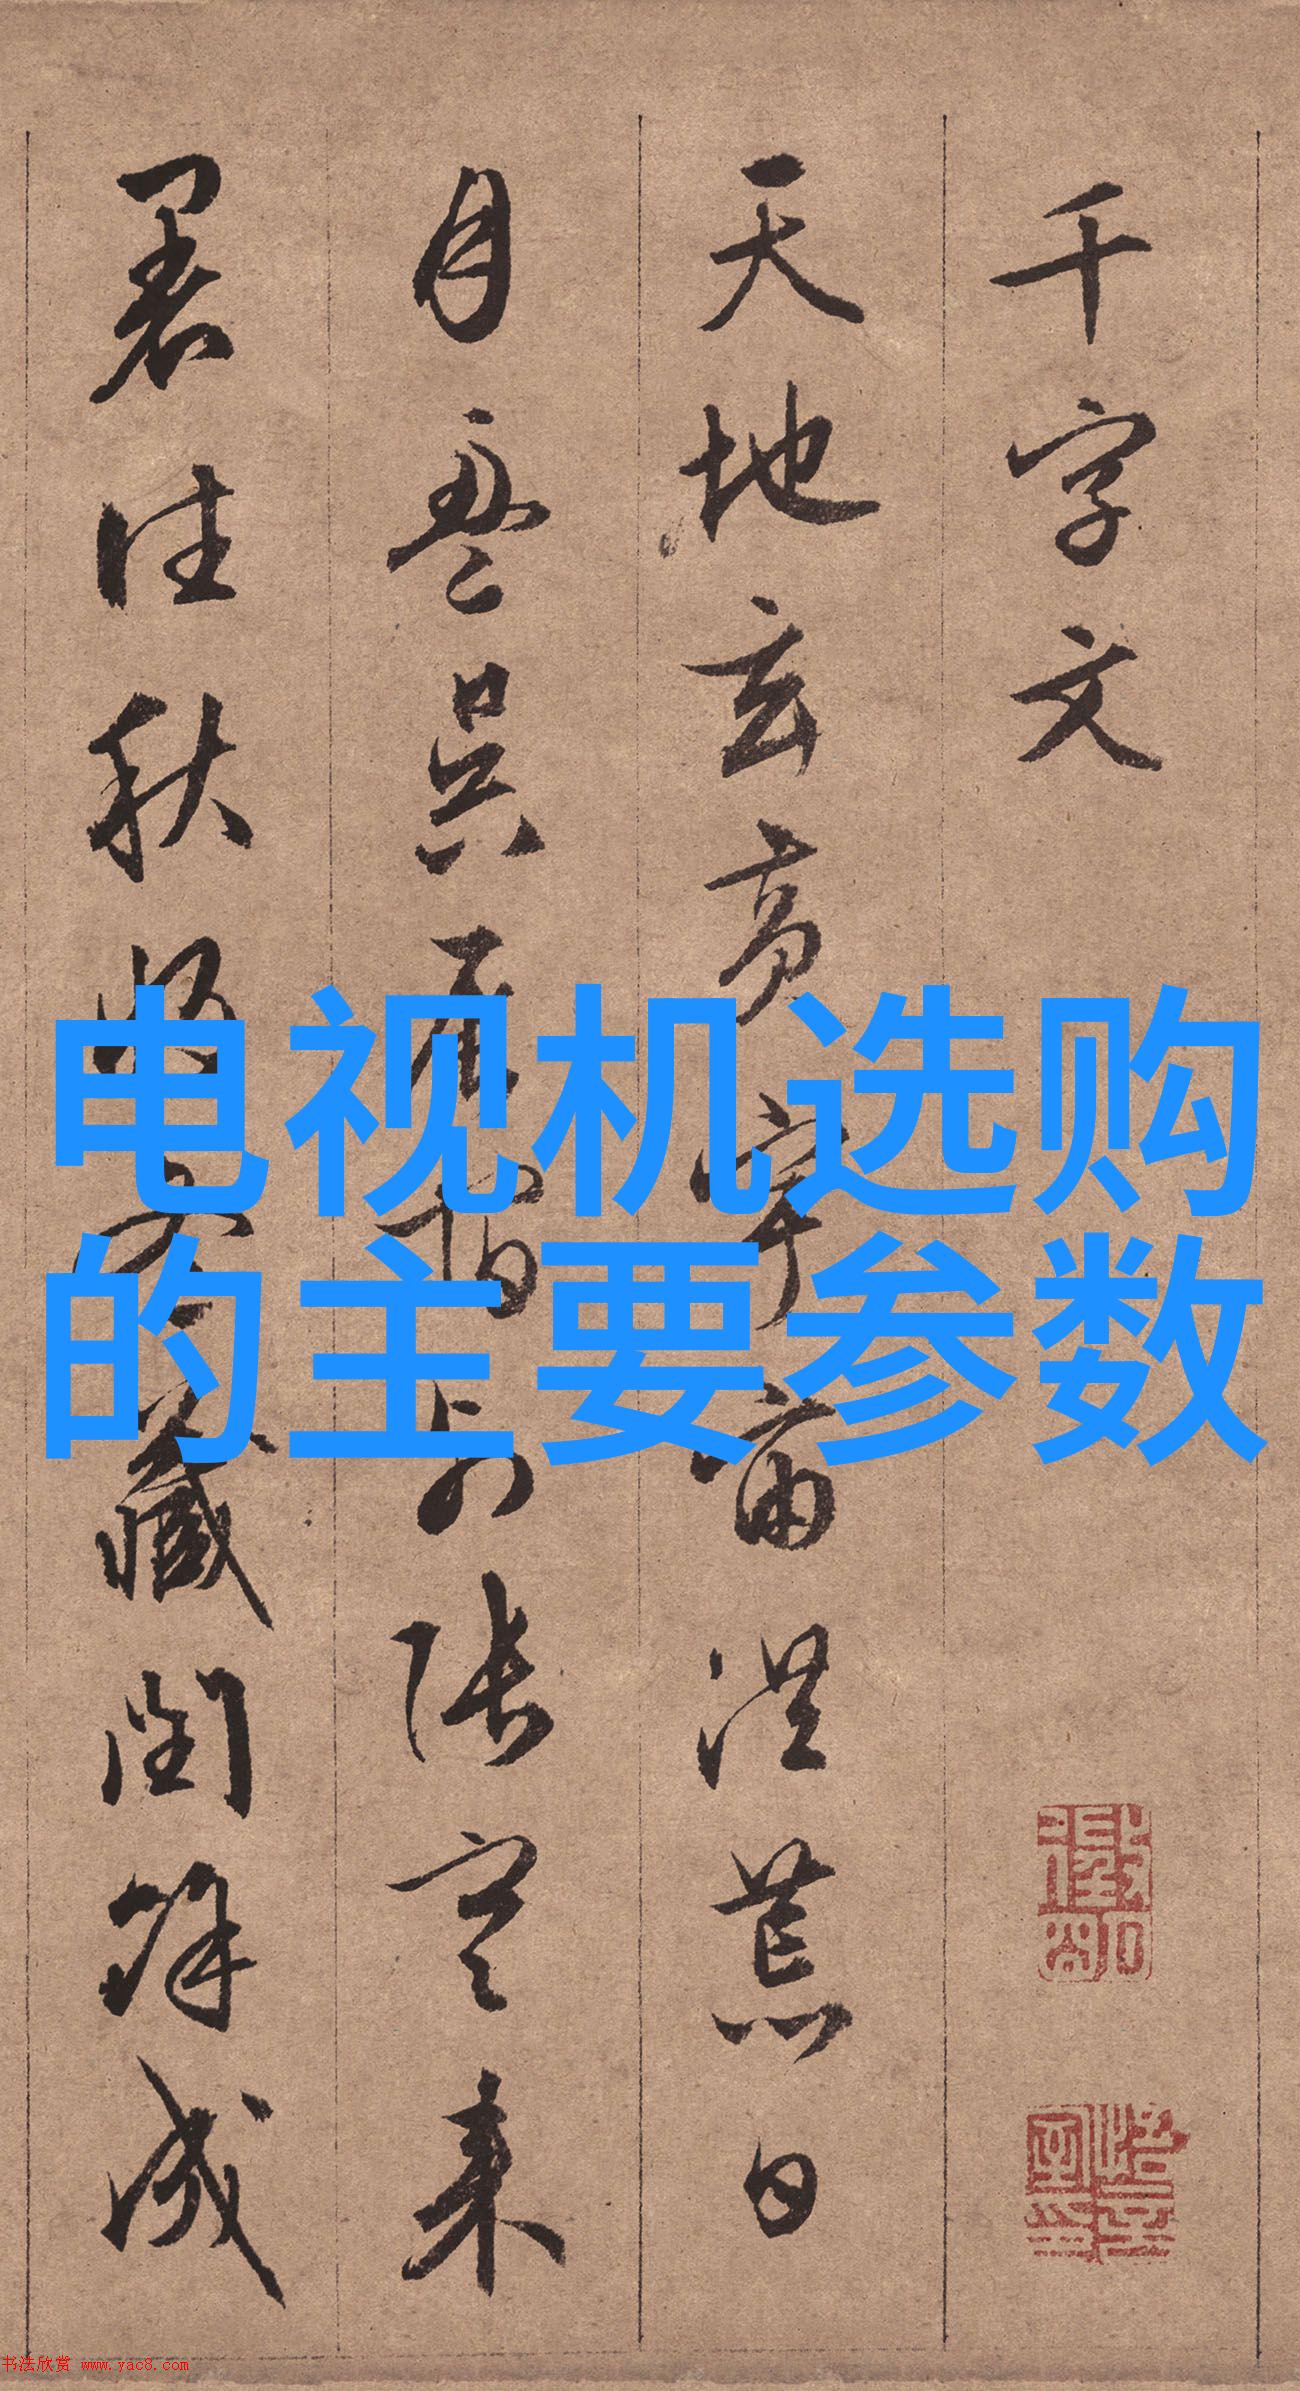 千字文
天地玄黄宇宙洪荒日
月盈昃辰宿列张寒来
暑往秋收冬藏闰馀成
电视机选购
的主要参数
书法欣赏 www.yac8.com